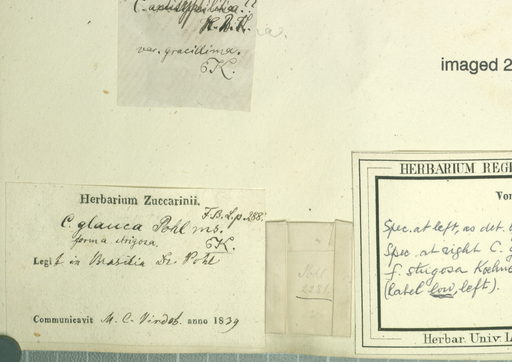 C. antisyphilitica !?
H. B. K.
var. gracillima.
EK.
imaged 2
Herbarium Zuccarinii.
F. B. l. p. 288.
C. glauca Pohl ms.
forma strigosa. EK.
Legit in Brasilia Dr. Pohl
Communicavit M. C. Vindob. anno 1839
Pohl
HERBARIUM REG
Vor
Spec. at left, as det.
Spec. at right C. g
f. strigosa Koehne
(label low, left).
Herbar. Univ. L